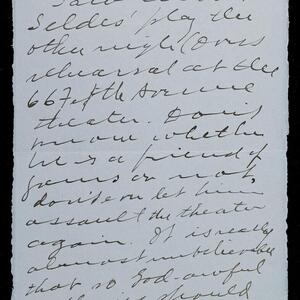 Seldes' play the
other night (Dress
rehearsal at the
667 Fifth Avenue
theater. Don't
know whether
he is a friend of
yours or not,
don't ever let him
assault the theater
again. It is really
almost unbelievable
that so God-awful
should